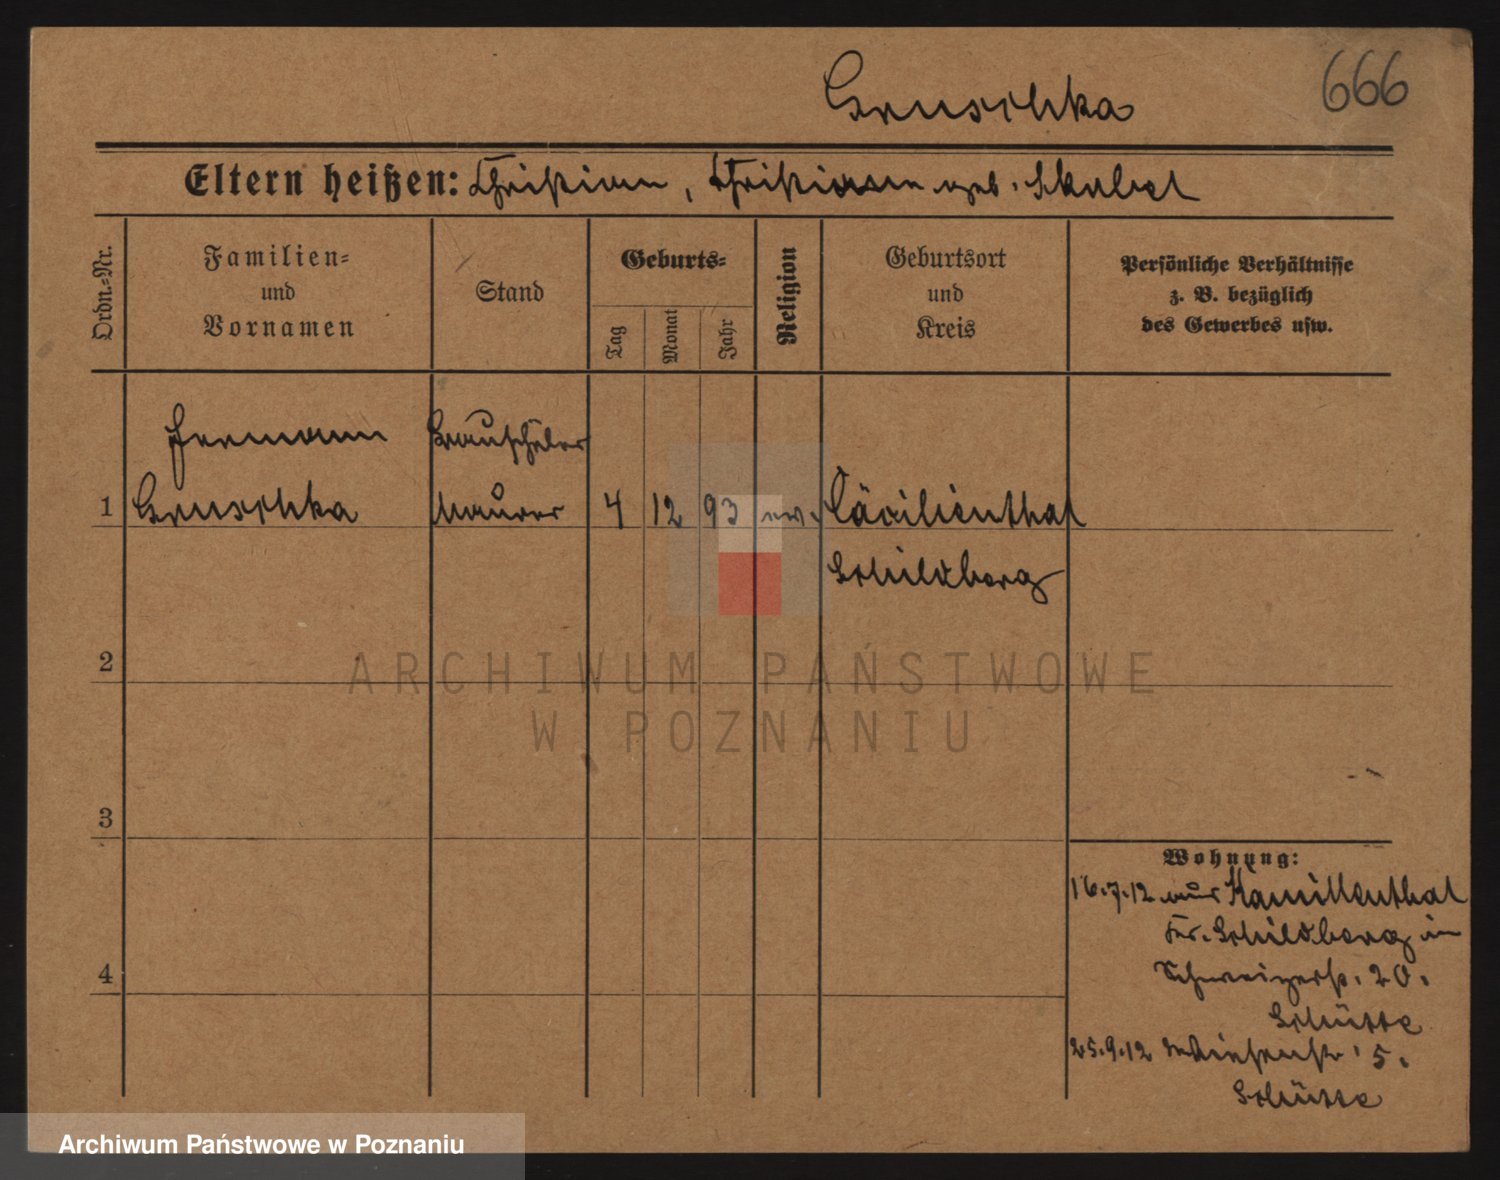 Gruschka
666
Eltern heißen: Christian, Christiane geb. Skabel
Ordn.=Nr.
Familien=
und
Vornamen
Stand
Geburts=
Tag
Monat
Jahr
Religion
Geburtsort
und
Kreis
Persönliche Verhältnisse
z. B. bezüglich
des Gewerbes usw.
Hermann Bauschüler
1 Gruschka Maurer 4 12 93 ev. Cäcilienthal
Schildberg
2
ARCHIWUM PAŃSTWOWE
W POZNANIU
3
Wohnung:
16.7.12 aus Kamillenthal
Kr. Schildberg in
4
Schweizerstr. 20.
Schütte
25.9.12 5.
Schütte
Archiwum Państwowe w Poznaniu